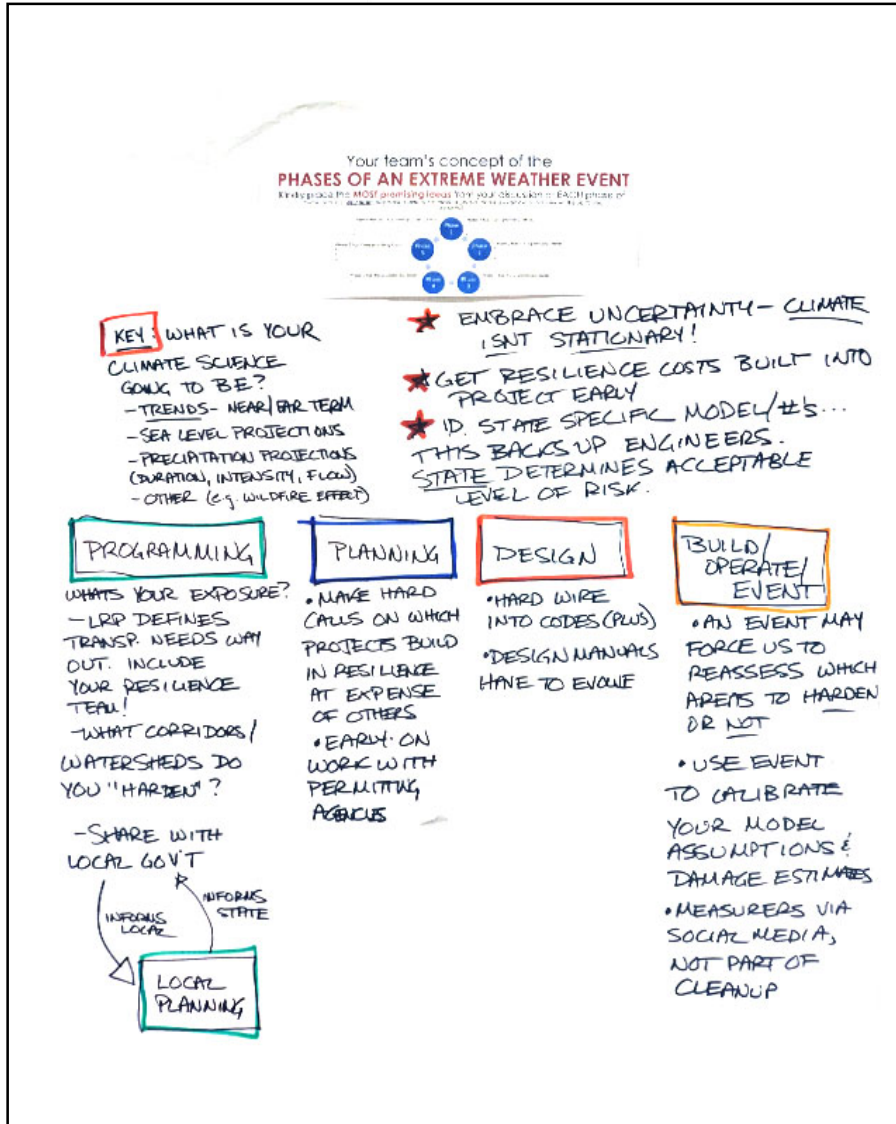 Your team's concept of the
PHASES OF AN EXTREME WEATHER EVENT
Kindly place the MOST promising ideas from your discussion of EACH phase of
Phase
1
Phase
5
Phase
Phase
4
Phase
3
KEY: WHAT IS YOUR
CLIMATE SCIENCE
GOING TO BE?
-TRENDS- NEAR/FAR TERM
-SEA LEVEL PROJECTIONS
-PRECIATATION PROJECTIONS
(DURATION, INTENSITY, FLOW)
-OTHER (e.g. WILDFIRE EFFECT)
EMBRACE UNCERTAINTY- CLIMATE
ISNT STATIONARY!
GET RESILIENCE COSTS BUILT INTO
PROJECT EARLY
ID. STATE SPECIFIC MODEL/#'s...
THIS BACKS UP ENGINEERS.
STATE DETERMINES ACCEPTABLE
LEVEL OF RISK.
PROGRAMMING
WHATS YOUR EXPOSURE?
-LRP DEFINES
TRANSP. NEEDS WAY
OUT. INCLUDE
YOUR RESILIENCE
TEAM!
-WHAT CORRIDORS/
WATERSHEDS DO
YOU "HARDEN"?
-SHARE WITH
LOCAL GOV'T
INFORMS
LOCAL
INFORMS
STATE
LOCAL
PLANNING
PLANNING
•MAKE HARD
CALLS ON WHICH
PROJECTS BUILD
IN RESILIENCE
AT EXPENSE
OF OTHERS
•EARLY ON
WORK WITH
PERMITTING
AGENCIES
DESIGN
•HARD WIRE
INTO CODES (PLUS)
•DESIGN MANUALS
HAVE TO EVOLVE
BUILD/
OPERATE/
EVENT
•AN EVENT MAY
FORCE US TO
REASSESS WHICH
AREAS TO HARDEN
OR NOT
•USE EVENT
TO CALIBRATE
YOUR MODEL
ASSUMPTIONS &
DAMAGE ESTIMATES
•MEASURERS VIA
SOCIAL MEDIA,
NOT PART OF
CLEANUP